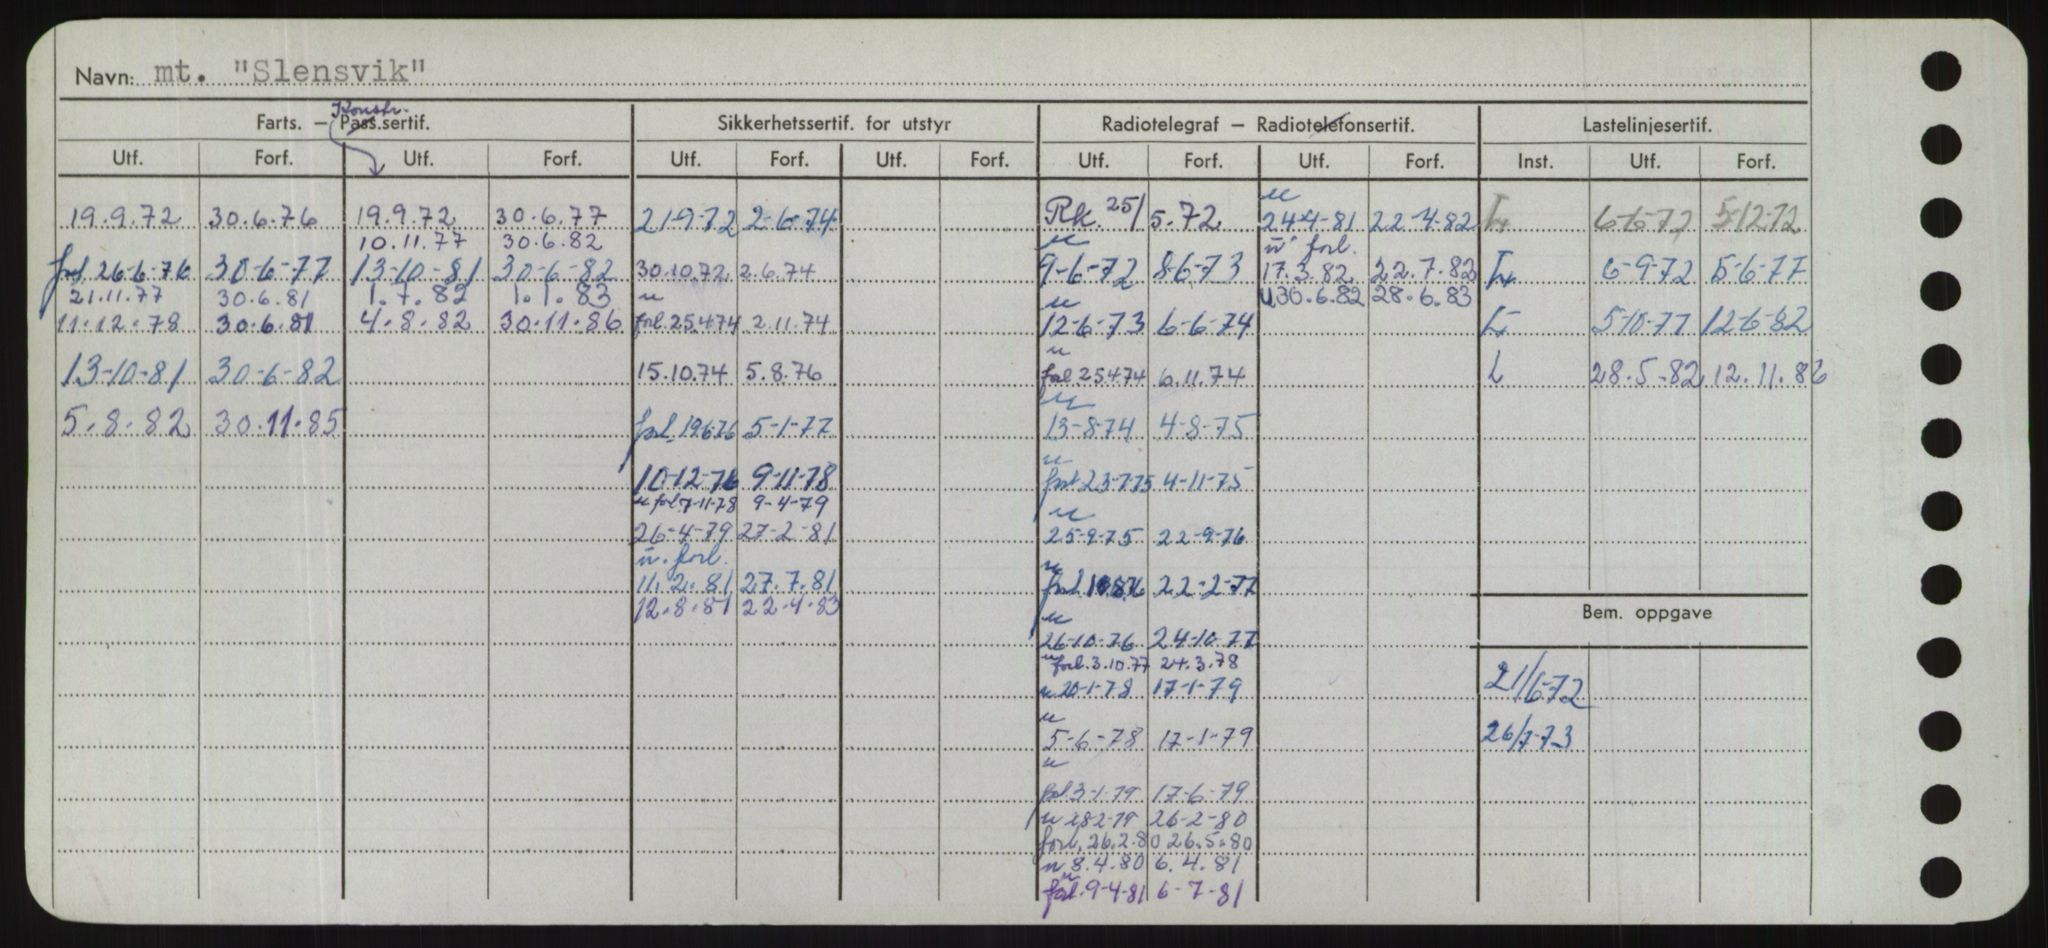 Navn: mt. "Slensvik"
Konstr.
Farts. — Pass.sertif. Sikkerhetssertif. for utstyr Radiotelegraf — Radiotelefonsertif. Lastelinjesertif.
Utf. Forf. Utf. Forf. Utf. Forf. Utf. Forf. Utf. Forf. Utf. Forf. Inst. Utf. Forf.
19.9.72 30.6.76 19.9.72 30.6.77 21-9-72 2-6-74 Rk. 25/5.72 u 24-4-81 22-4-82 L 6-6-72 5-12-72
10.11.77 30.6.82 u ü forl.
forl. 26-6-76 30-6-77 13-10-81 30-6-82 30.10.72 2.6.74 9-6-72 8-6-73 17.3.82 22.7.82 L 6-9-72 5-6-77
21.11.77 30.6.81 1.7.82 1.1.83 u u u 30.6.82 28.6.83
11.12.78 30.6.81 4.8.82 30.11.86 forl. 25.4.74 2.11.74 12-6-73 6-6-74 L 5-10-77 12-6-82
u
13-10-81 30-6-82 15.10.74 5.8.76 forl. 25.4.74 6.11.74 L 28.5.82 12.11.86
u
5.8.82 30.11.85 forl. 19.6.76 5-1-77 13-8-74 4-8-75
u
10-12-76 9-11-78 forl. 23-7-75 4-11-75
u forl. 7-11-78 9-4-79 u
26-4-79 27-2-81 25-9-75 22-9-76
ü. forl. u
11.2.81 27.7.81 forl. 22-2-77
12.8.81 22.4.83 u
Bem. oppgave
26-10-76 24-10-77
u forl. 3.10.77 24.3.78
u 20-1-78 17-1-79 21/6-72
u
5-6-78 17-1-79 26/7-73
u
forl. 3-1-79 17-6-79
u 28-2-79 26-2-80
forl. 26.2.80 26.5.80
u 8.4.80 6.4.81
u
forl. 9-4-81 6-7-81